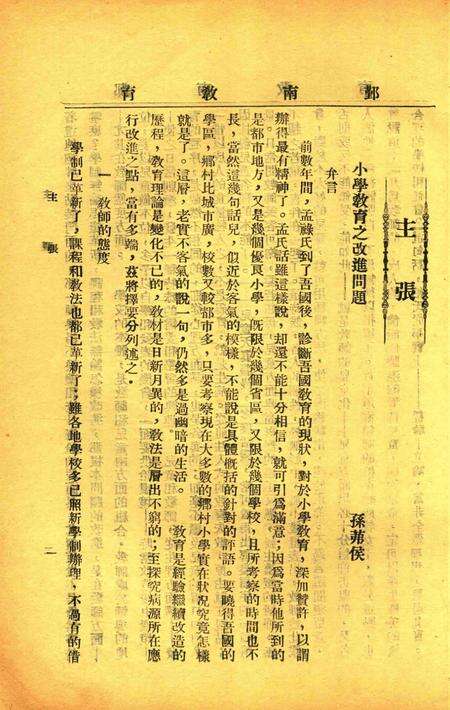 鄞南教育
主張
小學教育之改進問題
孫茀侯
弁言
前數年間，孟祿氏到了吾國後，診斷吾國教育的現狀，對於小學教育，深加贊許，以謂
辦得最有精神了。孟氏話雖這樣說，却還不能十分相信，就可引爲滿意；因爲當時他所到的
是都市地方，又是幾個優良小學，旣限於幾個省區，又限於幾個學校，且所考察的時間也不
長，當然這幾句話兒，似近於客氣的模樣，不能說是具體概括的針對的評語。要曉得吾國的
學區，鄉村比城市廣，校數又較都市多，只要考察現在大多數的鄉村小學實在狀况究竟怎樣
就是了。這層，老實不客氣的說一句，仍然多是過幽暗的生活。 教育是經驗繼續改造的
歷程，教育理論是變化不已的，教材是日新月異的，教法是層出不窮的；至探究病源所在應
行改進之點，當有多端，茲將擇要分列述之。
一 教師的態度
學制已革新了，課程和教法也都已革新了；雖各地學校多已照新學制辦理，不過有的借
主張
一